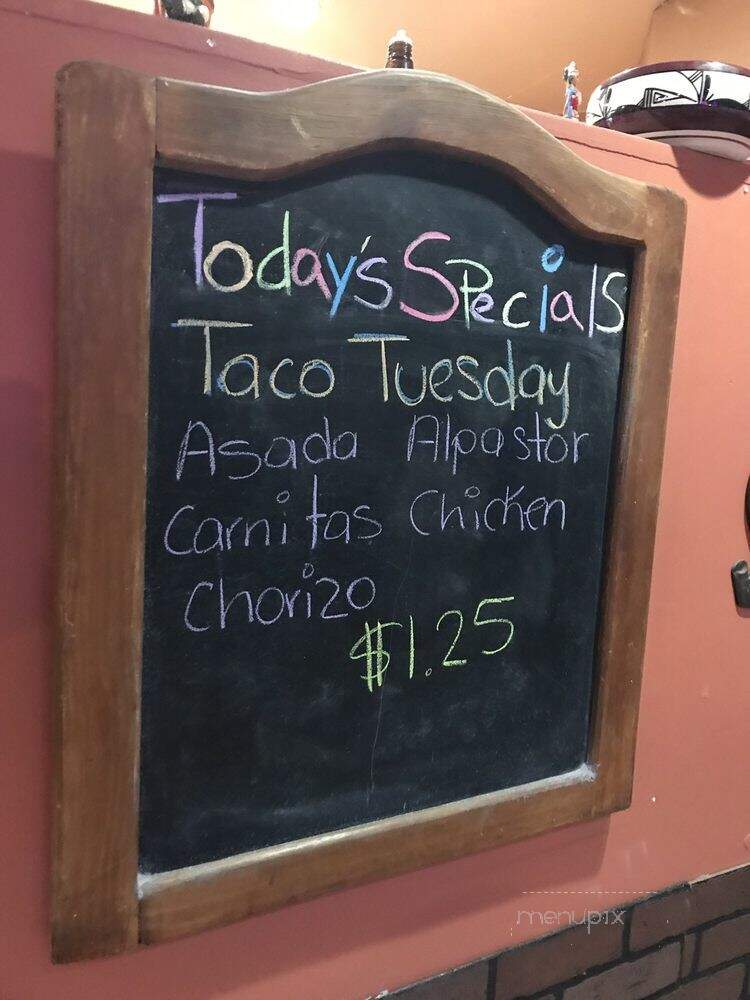 Today's Specials
Taco Tuesday
Asada Alpastor
Carnitas Chicken
Chorizo
$1.25
menupix